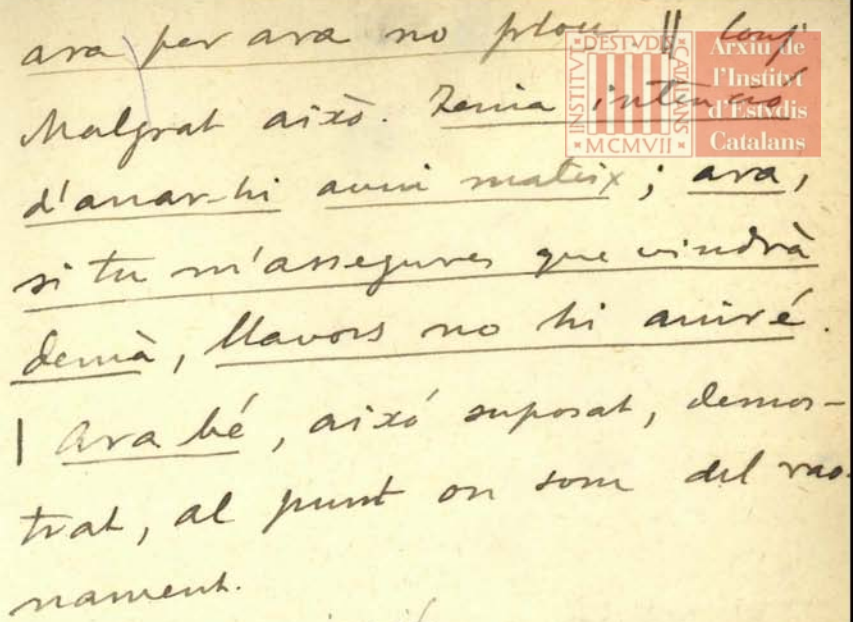 ara per ara no plou || conj
Malgrat això. Tenia intenció
d'anar-hi avui mateix; ara,
si tu m'assegures que vindrà
demà, llavors no hi aniré.
| Ara bé, aixó suposat, demos-
trat, al punt on som del rao-
nament.
INSTITVT D'ESTVDIS CATALANS
MCMVII
Arxiu de
l'Institvt
d'Estvdis
Catalans